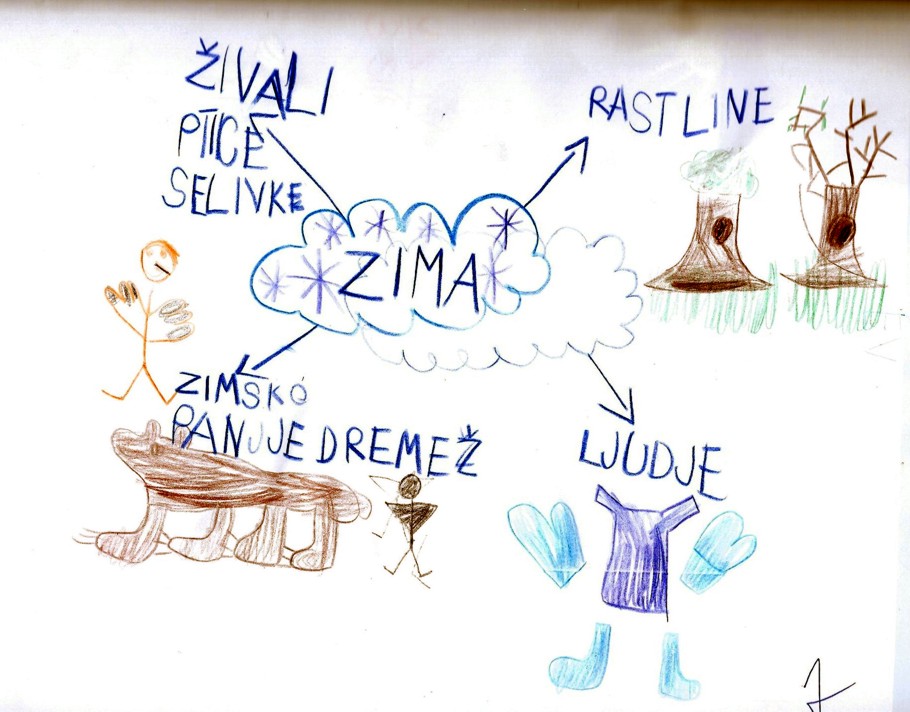 ŽIVALI
PTICE
SELIVKE
RASTLINE
ZIMA
ZIMSKO
PANJJE DREMEŽ
LJUDJE